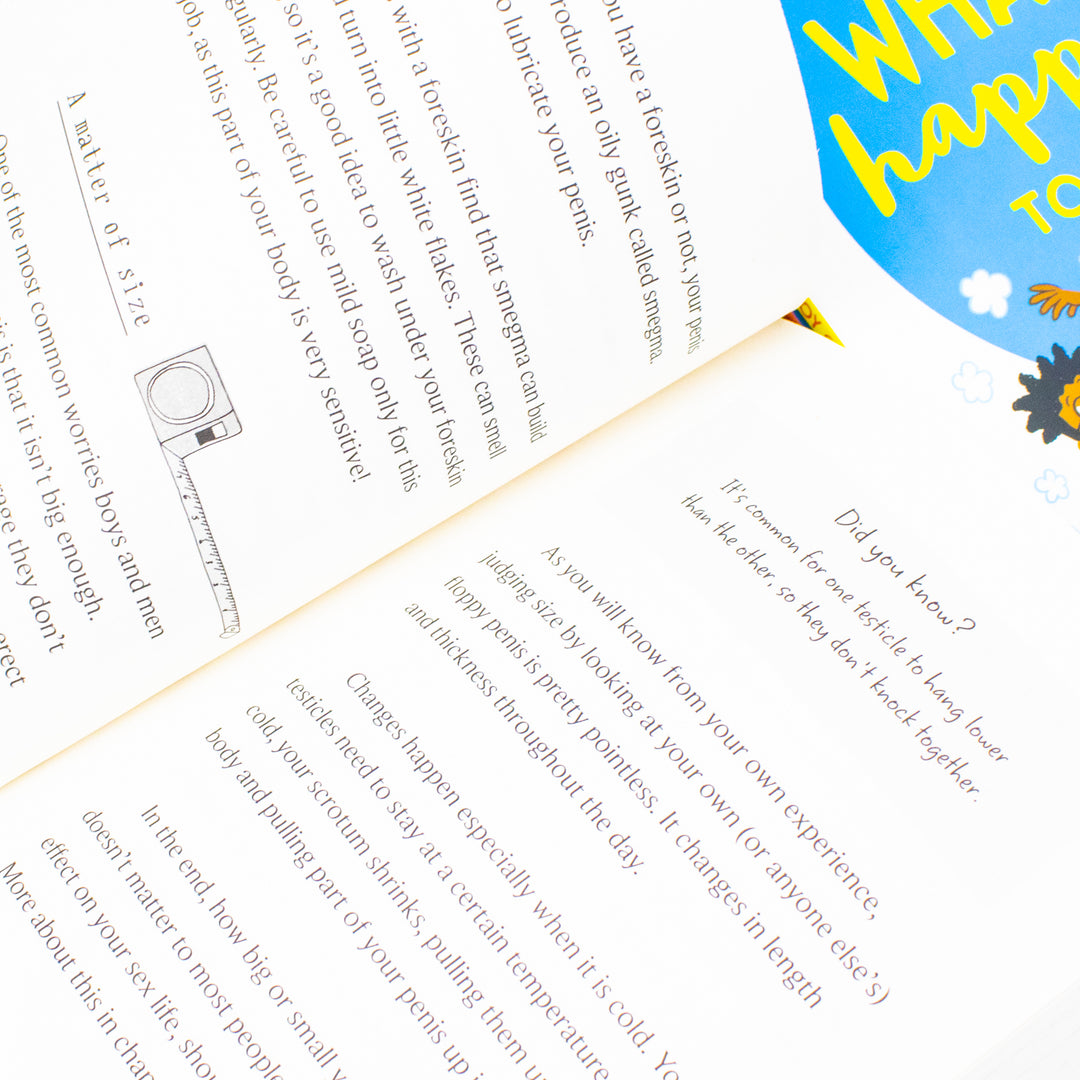 ou have a foreskin or not, your penis
roduce an oily gunk called smegma.
o lubricate your penis.
with a foreskin find that smegma can build
turn into little white flakes. These can smell
so it's a good idea to wash under your foreskin
gularly. Be careful to use mild soap only for this
job, as this part of your body is very sensitive!
A matter of size
One of the most common worries boys and men
is is that it isn't big enough.
rage they don't
erect
Did you know?
It's common for one testicle to hang lower
than the other, so they don't knock together.
As you will know from your own experience,
judging size by looking at your own (or anyone else's)
floppy penis is pretty pointless. It changes in length
and thickness throughout the day.
Changes happen especially when it is cold. Yo
testicles need to stay at a certain temperature
cold, your scrotum shrinks, pulling them u
body and pulling part of your penis up i
In the end, how big or small y
doesn't matter to most people
effect on your sex life, shou
More about this in chap
WHA
happ
TO
DY